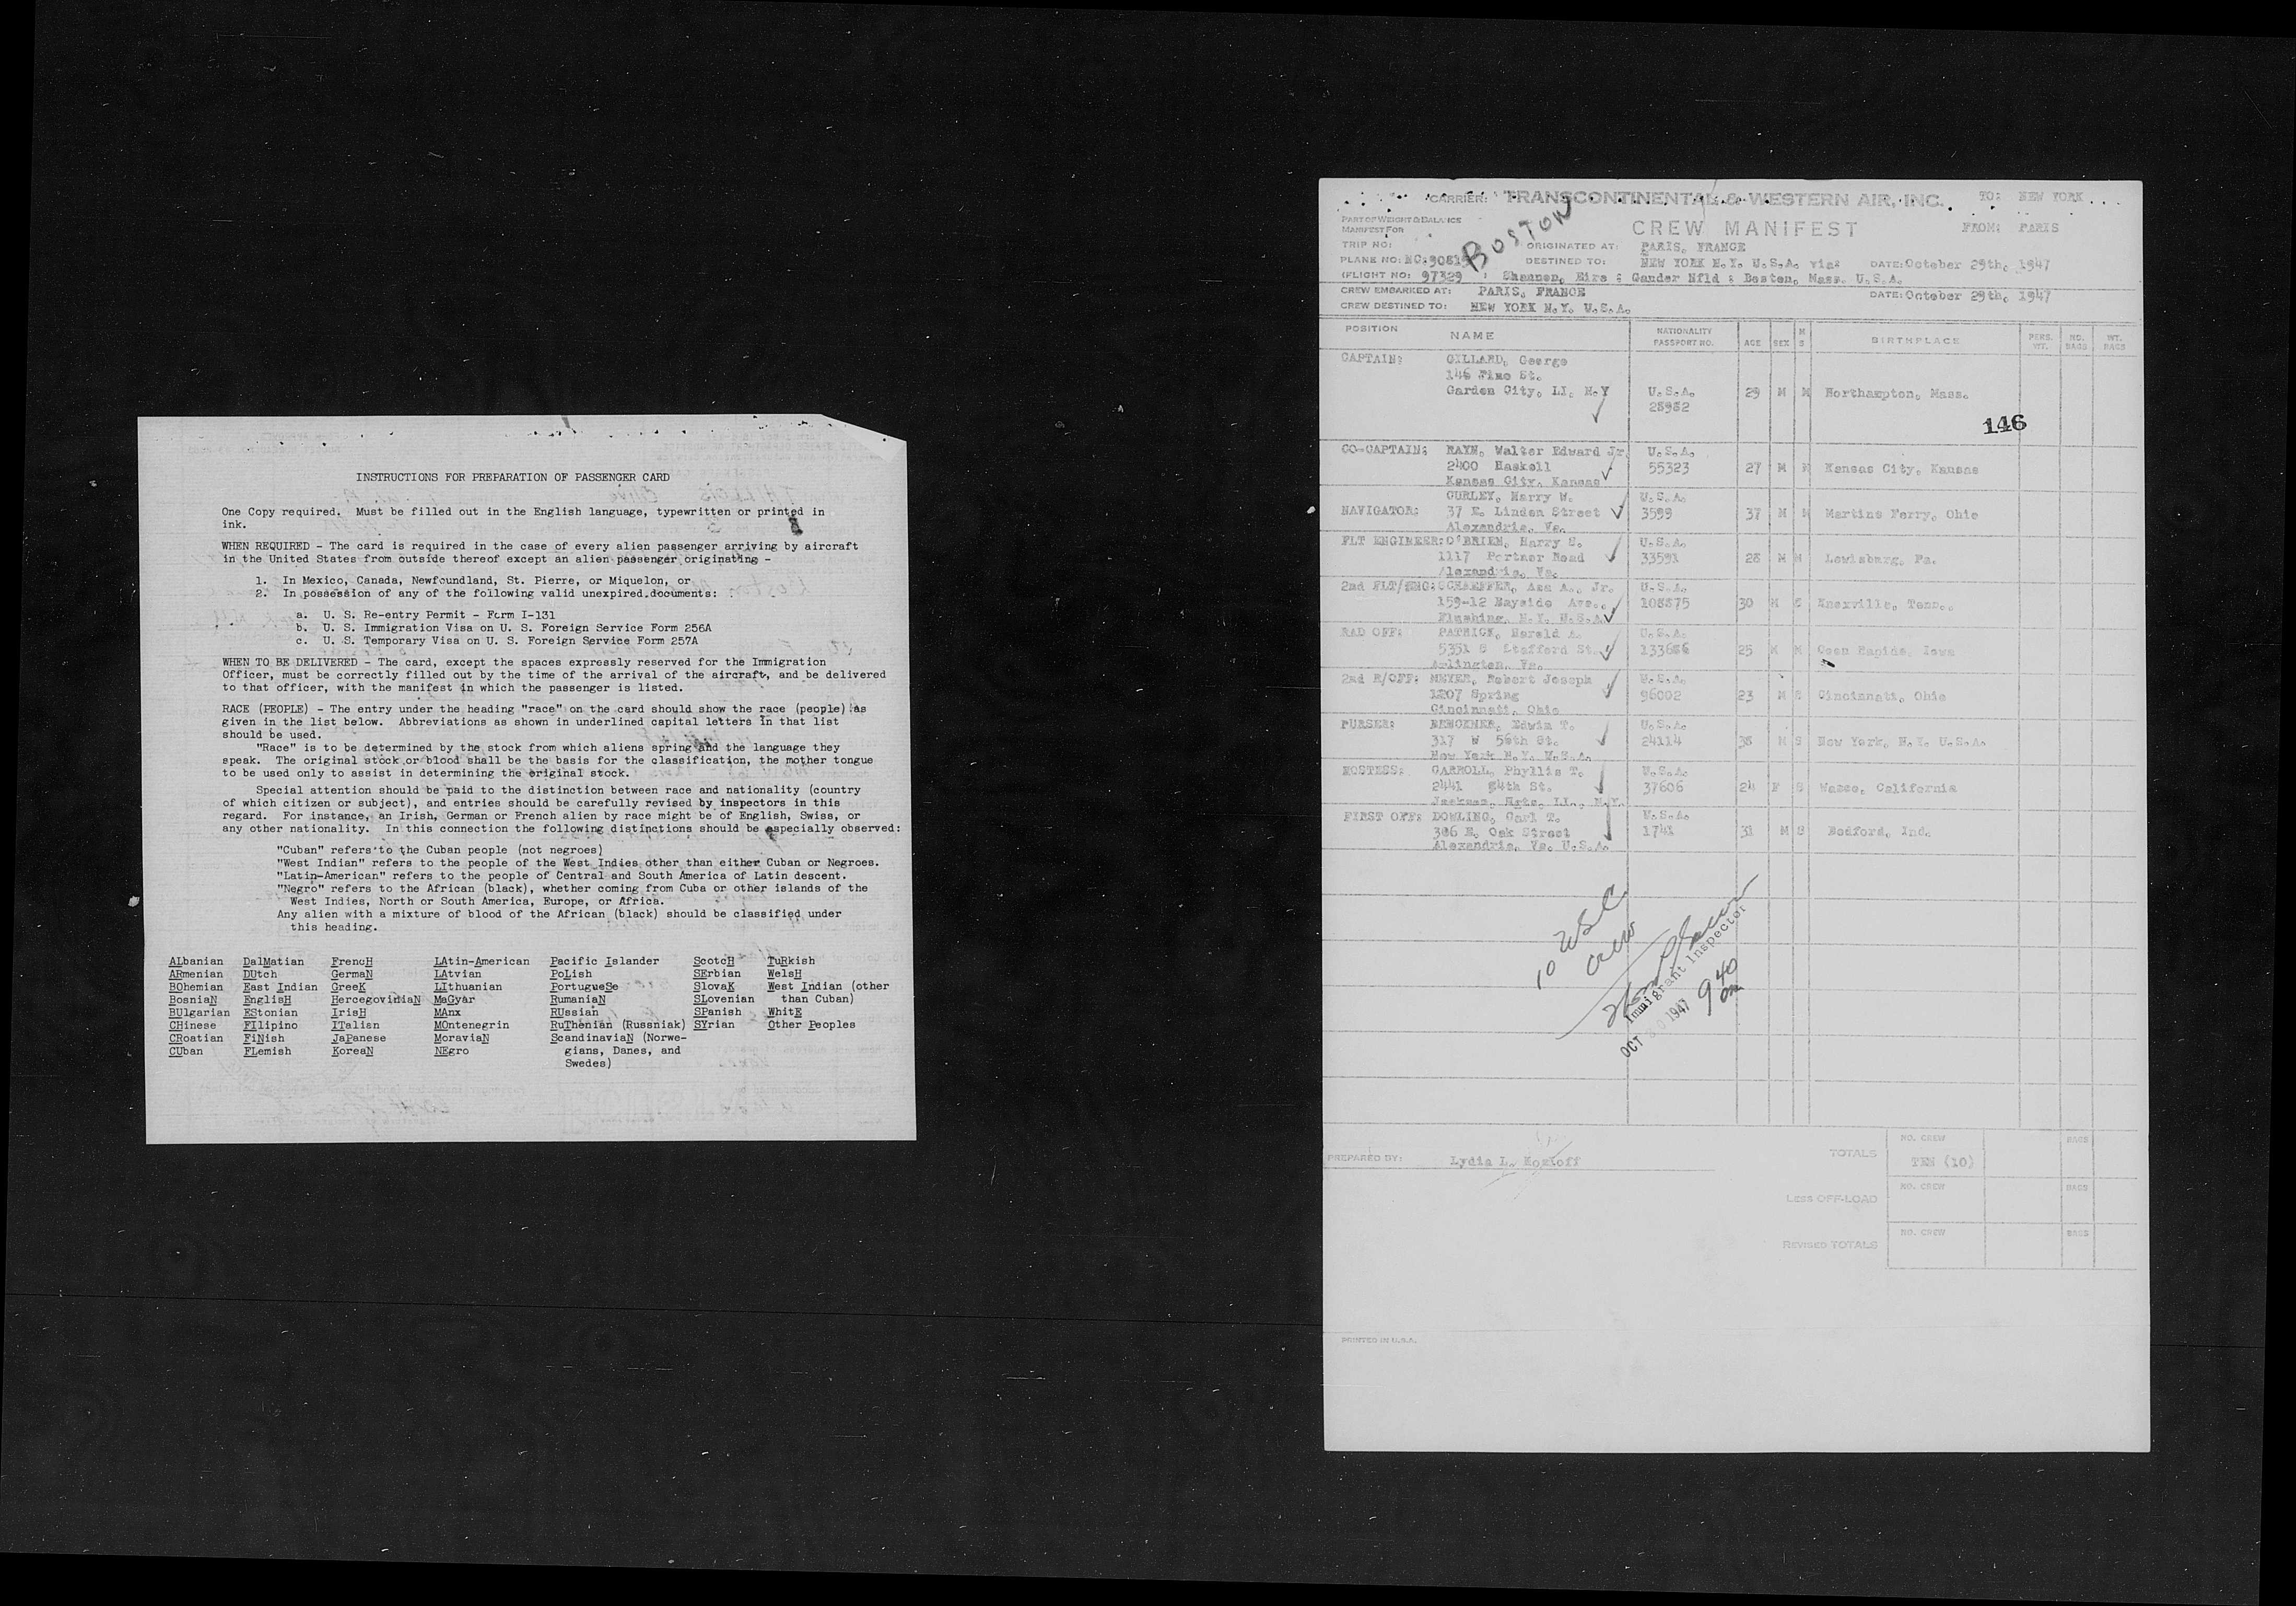 INSTRUCTIONS FOR PREPARATION OF PASSENGER CARD
One Copy required. Must be filled out in the English language, typewritten or printed in
ink.
WHEN REQUIRED - The card is required in the case of every alien passenger arriving by aircraft
in the United States from outside thereof except an alien passenger originating -
1. In Mexico, Canada, Newfoundland, St. Pierre, or Miquelon, or
2. In possession of any of the following valid unexpired documents:
a. U. S. Re-entry Permit - Form I-131
b. U. S. Immigration Visa on U. S. Foreign Service Form 256A
c. U. S. Temporary Visa on U. S. Foreign Service Form 257A
WHEN TO BE DELIVERED - The card, except the spaces expressly reserved for the Immigration
Officer, must be correctly filled out by the time of the arrival of the aircraft, and be delivered
to that officer, with the manifest in which the passenger is listed.
RACE (PEOPLE) - The entry under the heading "race" on the card should show the race (people) as
given in the list below. Abbreviations as shown in underlined capital letters in that list
should be used.
"Race" is to be determined by the stock from which aliens spring and the language they
speak. The original stock or blood shall be the basis for the classification, the mother tongue
to be used only to assist in determining the original stock.
Special attention should be paid to the distinction between race and nationality (country
of which citizen or subject), and entries should be carefully revised by inspectors in this
regard. For instance, an Irish, German or French alien by race might be of English, Swiss, or
any other nationality. In this connection the following distinctions should be especially observed:
"Cuban" refers to the Cuban people (not negroes)
"West Indian" refers to the people of the West Indies other than either Cuban or Negroes.
"Latin-American" refers to the people of Central and South America of Latin descent.
"Negro" refers to the African (black), whether coming from Cuba or other islands of the
West Indies, North or South America, Europe, or Africa.
Any alien with a mixture of blood of the African (black) should be classified under
this heading.
ALbanian DalMatian FrencH LAtin-American Pacific Islander ScotcH TuRkish
ARmenian DUtch GermaN LAtvian PoLish SErbian WelsH
BOhemian East Indian GreeK LIthuanian PortugueSe SlovaK West Indian (other
BosniaN EnglisH HercegoviniaN MaGyar RumaniaN SLovenian than Cuban)
BUlgarian EStonian IrisH MAnx RUssian SPanish WhitE
CHinese FIlipino ITalian MOntenegrin RuThenian (Russniak) SYrian Other Peoples
CRoatian FiNish JaPanese MoraviaN ScandinaviaN (Norwe-
CUban FLemish KoreaN NEgro gians, Danes, and
Swedes)
CARRIER: TRANSCONTINENTAL & WESTERN AIR, INC. TO: NEW YORK
PART OF WEIGHT & BALANCE
MANIFEST FOR
CREW MANIFEST FROM: PARIS
BOSTON
TRIP NO: ORIGINATED AT: PARIS, FRANCE
PLANE NO: NC:90815 DESTINED TO: NEW YORK N.Y. U.S.A. via: DATE: October 29th, 1947
(FLIGHT NO: 97329 ) Shannon, Eire : Gander Nfld : Boston, Mass. U.S.A.
CREW EMBARKED AT: PARIS, FRANCE DATE: October 29th, 1947
CREW DESTINED TO: NEW YORK N.Y. U.S.A.
POSITION NAME NATIONALITY PASSPORT NO. AGE SEX M S BIRTHPLACE PERS. WT. NO. BAGS WT. BAGS
CAPTAIN: GILLARD, George
146 Pine St.
Garden City, LI, N.Y U.S.A. 29 M M Northampton, Mass.
28982
146
CO-CAPTAIN: Walter Edward Jr. U.S.A.
2400 Haskell 55323 27 M M Kansas City, Kansas
Kansas City, Kansas
GURLEY, Harry W. U.S.A.
NAVIGATOR: 37 E. Linden Street 3599 37 M M Martins Ferry, Ohio
Alexandria, Va.
FLT ENGINEER: O'BRIEN, Harry U.S.A.
1117 Portner Road 33591 28 M M Lewisburg, Pa.
Alexandria, Va.
2nd FLT/ENG: SCHAEFFER, Asa A., Jr. U.S.A.
159-12 Bayside Ave., 108875 30 M S Knoxville, Tenn.
Flushing, N.Y. U.S.A.
RAD OFF: PATRICK, Harold A. U.S.A.
5351 S Stafford St. 25 M M Coon Rapids, Iowa
Arlington, Va.
2nd R/OFF: MEYER, Robert Joseph U.S.A.
1207 Spring 96002 23 M S Cincinnati, Ohio
Cincinnati, Ohio
PURSER: Edwin T. U.S.A.
317 W 56th St. 24114 38 M S New York, N.Y. U.S.A.
New York N.Y. U.S.A.
HOSTESS: CARROLL, Phyllis T. U.S.A.
2441 84th St. 37606 24 F S Wasco, California
Jackson, Hgts, LI., N.Y.
FIRST OFF: DOWLING, Carl T. U.S.A.
306 E. Oak Street 1741 31 M S Bedford, Ind.
Alexandria, Va. U.S.A.
10 USC
crew
Immigrant Inspector
OCT 30 1947
9 40
PREPARED BY: Lydia L. Kozloff
TOTALS NO. CREW TEN (10) BAGS
LESS OFF-LOAD NO. CREW BAGS
REVISED TOTALS NO. CREW BAGS
PRINTED IN U.S.A.